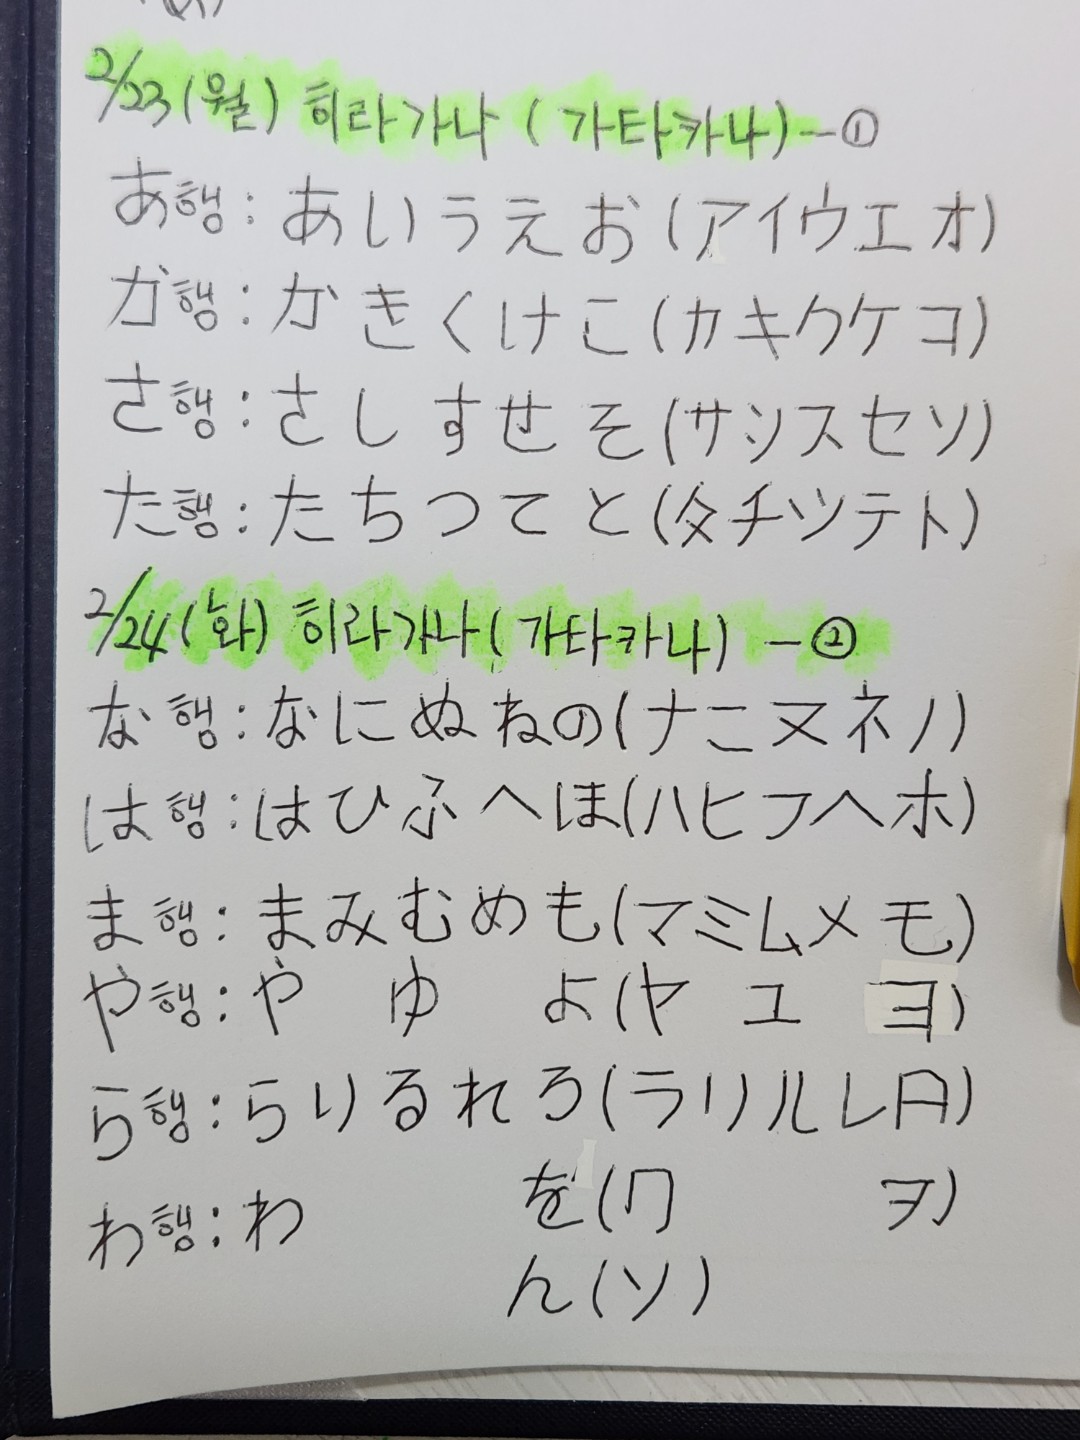 2/23(월) 히라가나 (가타카나) - ①
あ행: あいうえお(アイウエオ)
か행: かきくけこ(カキクケコ)
さ행: さしすせそ(サシスセソ)
た행: たちつてと(タチツテト)
2/24(화) 히라가나(가타카나) - ②
な행: なにぬねの(ナニヌネノ)
は행: はひふへほ(ハヒフヘホ)
ま행: まみむめも(マミムメモ)
や행: や ゆ よ(ヤ ユ ヨ)
ら행: らりるれろ(ラリルレロ)
わ행: わ を(ワ ヲ)
ん(ソ)